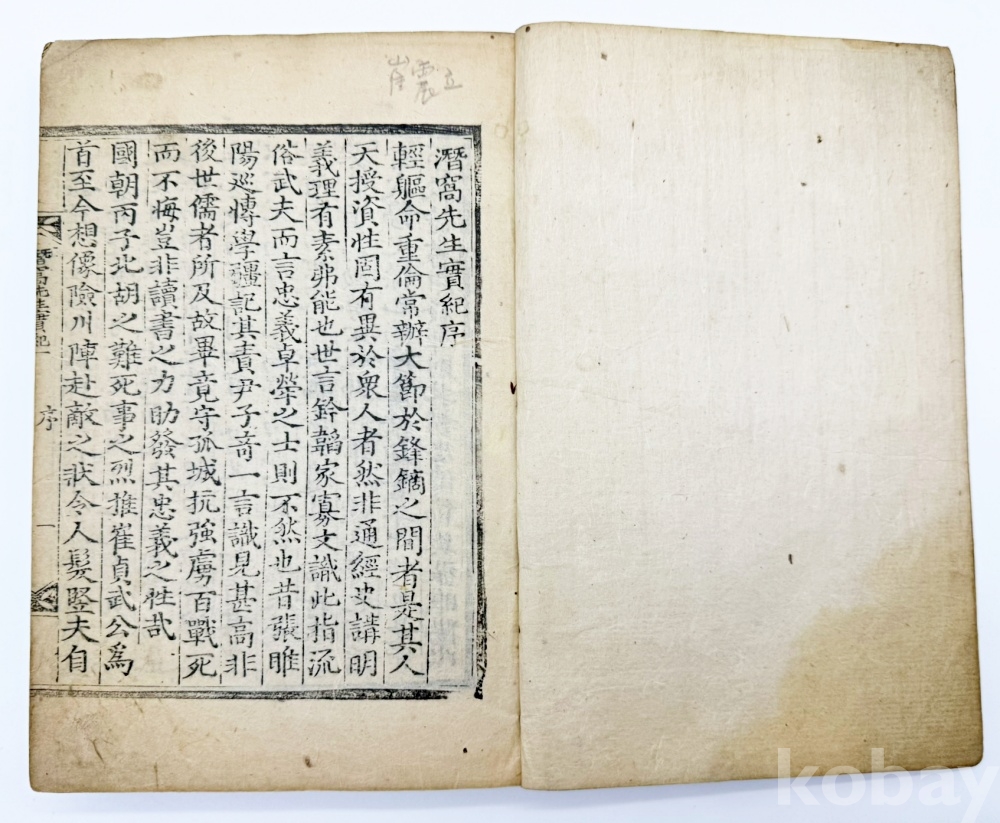 崔震立
潛窩先生實紀序
輕軀命重倫常辦大節於鋒鏑之間者是其人
天授資性固有異於衆人者然非通經史講明
義理有素弗能也世言鈐韜家寡文識此指流
俗武夫而言忠義卓犖之士則不然也昔張睢
陽巡愽學彊記其責尹子奇一言識見甚高非
後世儒者所及故畢竟守孤城抗強虜百戰死
而不悔豈非讀書之力助發其忠義之性哉
國朝丙子北胡之難死事之烈推崔貞武公爲
首至今想像險川陣赴敵之狀令人髮竪夫自
潛窩先生實紀
序
一
kobay